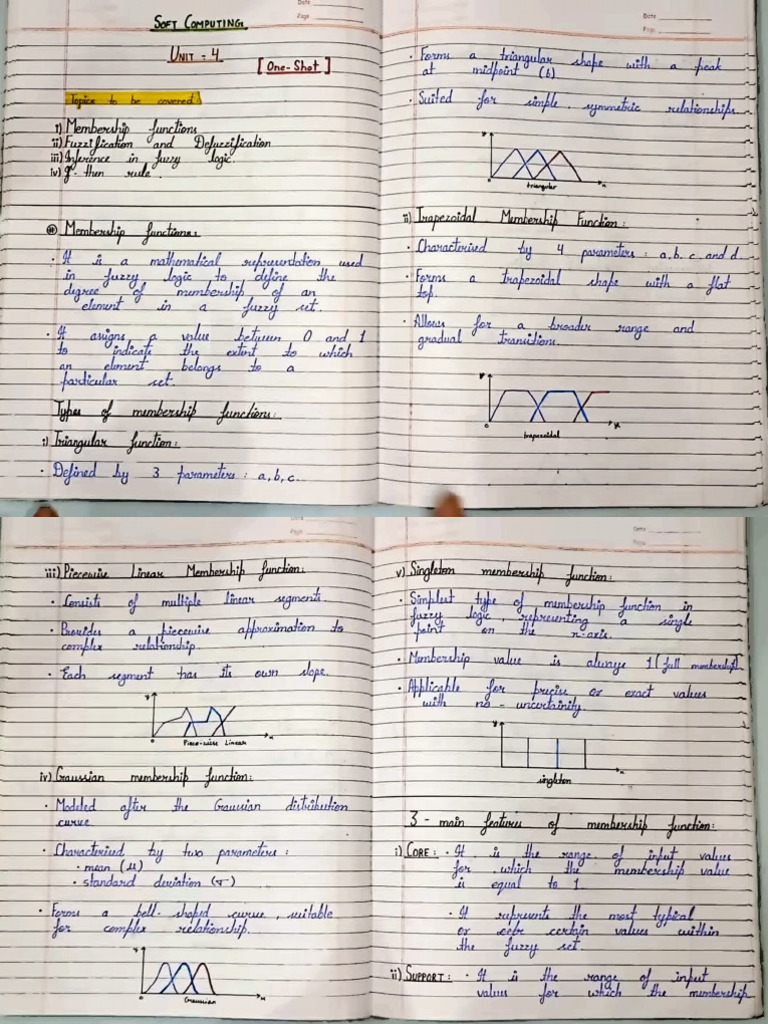 SOFT COMPUTING
UNIT - 4
[One-Shot]
Topics to be covered
i) Membership functions
ii) Fuzzification and Defuzzification
iii) Inference in fuzzy logic.
iv) If - then rule
Membership functions:
• It is a mathematical representation used
in fuzzy logic to define the
degree of membership of an
element in a fuzzy set.
• It assigns a value between 0 and 1
to indicate the extent to which
an element belongs to a
particular set.
Types of membership functions:
i) Triangular function:
• Defined by 3 parameters: a,b,c.
Date
Page
• Forms a triangular shape with a peak
at midpoint (b)
• Suited for simple, symmetric relationships.
triangular
ii) Trapezoidal Membership Function:
• Characterised by 4 parameters: a,b,c and d.
• Forms a trapezoidal shape with a flat
top.
• Allows for a broader range and
gradual transitions.
trapezoidal
iii) Piecewise Linear Membership function:
• Consists of multiple linear segments.
• Provides a piecewise approximation to
complex relationship.
• Each segment has its own slope.
Piece-wise Linear
iv) Gaussian membership function:
• Modeled after the Gaussian distribution
curve
• Characterised by two parameters:
• mean (μ)
• standard deviation (σ)
• Forms a bell-shaped curve, suitable
for complex relationship.
Gaussian
Date
Page
v) Singleton membership function:
• Simplest type of membership function in
fuzzy logic, representing a single
point on the x-axis.
• Membership value is always 1 (full membership).
• Applicable for precise or exact values
with no-uncertainity.
singleton
3 - main features of membership function:
i) CORE: • It is the range of input values
for which the membership value
is equal to 1.
• It represents the most typical
or certain values within
the fuzzy set.
ii) SUPPORT: • It is the range of input
values for which the membership